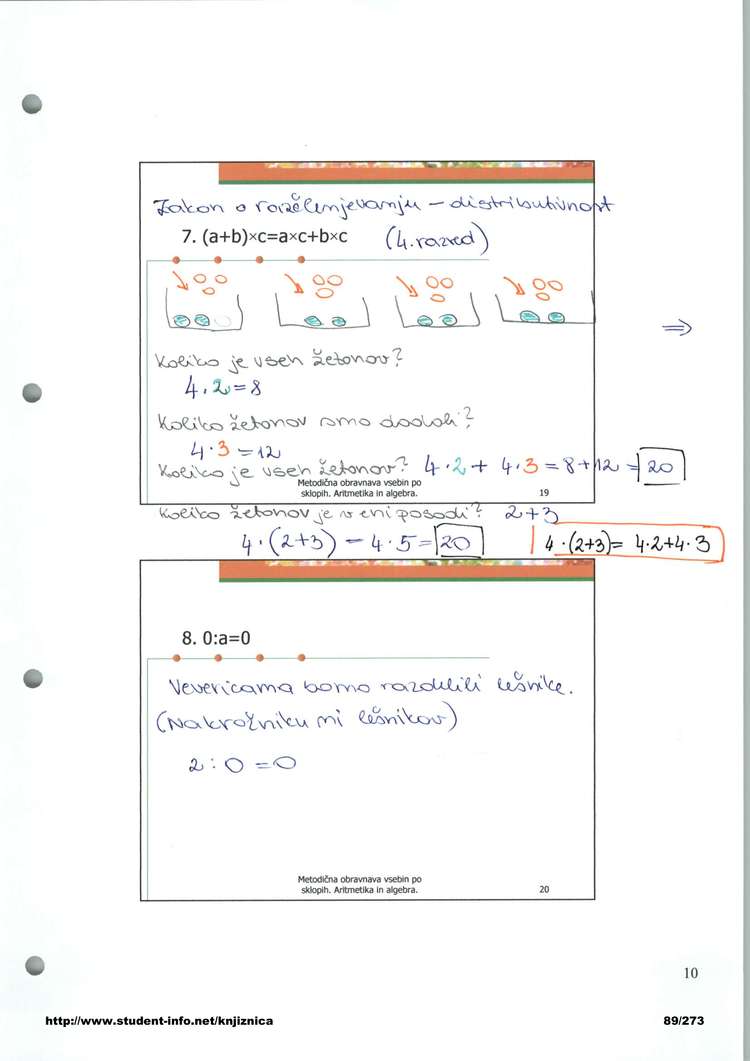 Zakon o razčlenjevanju - distributivnost
7. (a+b)×c=a×c+b×c (4. razred)
⇒
Koliko je vseh žetonov?
4 · 2 = 8
Koliko žetonov smo dodali?
4 · 3 = 12
Koliko je vseh žetonov? 4 · 2 + 4 · 3 = 8 + 12 = 20
Metodična obravnava vsebin po
sklopih. Aritmetika in algebra.
19
Koliko žetonov je v eni posodi? 2+3
4 · (2+3) = 4 · 5 = 20
4 · (2+3) = 4·2+4·3
8. 0:a=0
Vevericama bomo razdelili lešnike.
(Na krožniku ni lešnikov)
2 : 0 = 0
Metodična obravnava vsebin po
sklopih. Aritmetika in algebra.
20
10
http://www.student-info.net/knjiznica
89/273